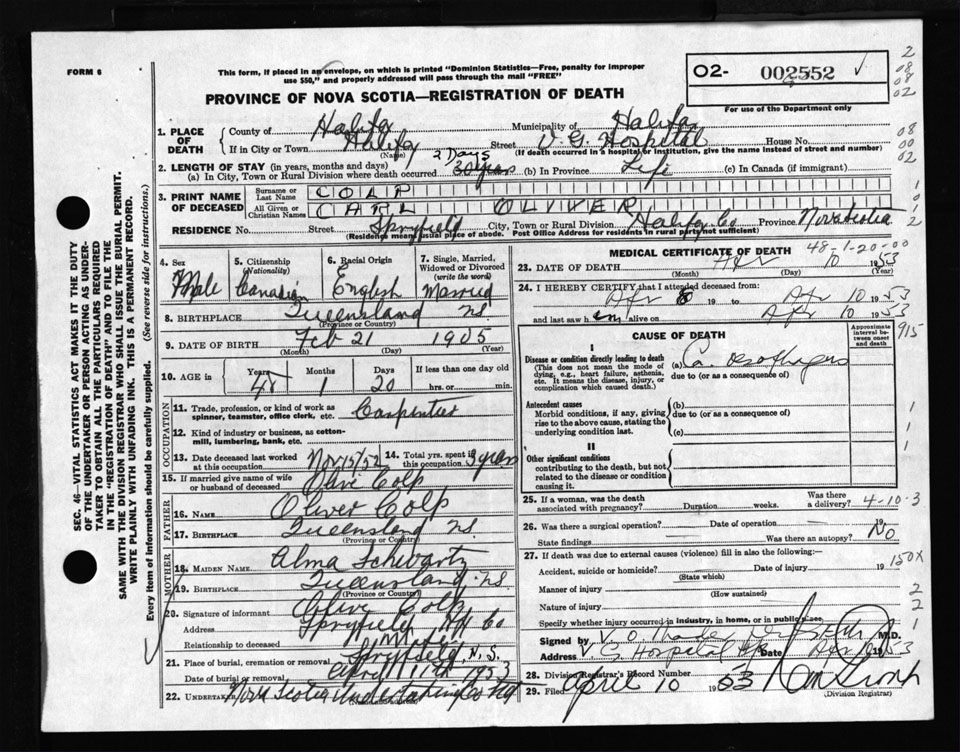 FORM 6
This form, if placed in an envelope, on which is printed "Dominion Statistics—Free, penalty for improper use $50," and properly addressed will pass through the mail "FREE"
O2- 002552
For use of the Department only
2
08
08
02
PROVINCE OF NOVA SCOTIA—REGISTRATION OF DEATH
1. PLACE OF DEATH
County of Halifax Municipality of Halifax
If in City or Town Halifax (Name) Street V. G. Hospital House No.
(If death occurred in a hospital or institution, give the name instead of street and number)
08
00
02
2. LENGTH OF STAY (in years, months and days)
(a) In City, Town or Rural Division where death occurred 2 Days 30 years (b) In Province Life (c) In Canada (if immigrant)
3. PRINT NAME OF DECEASED
Surname or Last Name COLP
All Given or Christian Names CARL OLIVER
RESIDENCE No. Street Spryfield City, Town or Rural Division Halifax Co Province Nova Scotia
(Residence means usual place of abode. Post Office Address for residents in rural parts not sufficient)
4. Sex Male
5. Citizenship (Nationality) Canadian
6. Racial Origin English
7. Single, Married, Widowed or Divorced (write the word) Married
8. BIRTHPLACE Queensland NS. (Province or Country)
9. DATE OF BIRTH Feb 21 1905
(Month) (Day) (Year)
10. AGE in Years 48 Months 1 Days 20 If less than one day old hrs. or min.
OCCUPATION
11. Trade, profession, or kind of work as spinner, teamster, office clerk, etc. Carpenter
12. Kind of industry or business, as cotton-mill, lumbering, bank, etc.
13. Date deceased last worked at this occupation Nov 15/52
14. Total yrs. spent in this occupation 3 years
15. If married give name of wife or husband of deceased Olive Colp
FATHER
16. Name Oliver Colp
17. Birthplace Queensland NS.
(Province or Country)
MOTHER
18. Maiden Name Alma Schwartz
19. Birthplace Queensland NS
(Province or Country)
20. Signature of informant Olive Colp
Address Spryfield Hfx Co
Relationship to deceased
21. Place of burial, cremation or removal Spryfield, N.S.
Date of burial or removal April 11th 1953
22. Undertaker Nova Scotia Undertaking Co
MEDICAL CERTIFICATE OF DEATH
48-1-20-00
23. DATE OF DEATH Apr 10 1953
(Month) (Day) (Year)
24. I HEREBY CERTIFY that I attended deceased from
Apr 8 19 to Apr 10 1953
and last saw him alive on Apr 10 1953
CAUSE OF DEATH
Approximate interval between onset and death
915
I
Disease or condition directly leading to death (This does not mean the mode of dying, e.g., heart failure, asthenia, etc. It means the disease, injury, or complication which caused death.)
(a) Ca. oesophagus
due to (or as a consequence of)
Antecedent causes
Morbid conditions, if any, giving rise to the above cause, stating the underlying condition last.
(b)
due to (or as a consequence of)
(c)
II
Other significant conditions contributing to the death, but not related to the disease or condition causing it.
25. If a woman, was the death associated with pregnancy? Duration weeks. Was there a delivery?
4-10-3
26. Was there a surgical operation? Date of operation 19
State findings Was there an autopsy? No
27. If death was due to external causes (violence) fill in also the following:—
Accident, suicide or homicide? (State which) Date of injury 19
150X
Manner of injury (How sustained)
2
Nature of injury
2
Specify whether injury occurred in industry, in home, or in public place,
1
Signed by V. O. M.D.
Address V. G. Hospital Hfx Date Apr 10 1953
28. Division Registrar's Record Number
29. Filed April 10 1953
(Division Registrar)
SEC. 46—VITAL STATISTICS ACT MAKES IT THE DUTY OF THE UNDERTAKER OR PERSON ACTING AS UNDERTAKER TO OBTAIN ALL THE PARTICULARS REQUIRED IN THE "REGISTRATION OF DEATH" AND TO FILE THE SAME WITH THE DIVISION REGISTRAR WHO SHALL ISSUE THE BURIAL PERMIT. WRITE PLAINLY WITH UNFADING INK. THIS IS A PERMANENT RECORD.
Every item of information should be carefully supplied. (See reverse side for instructions.)